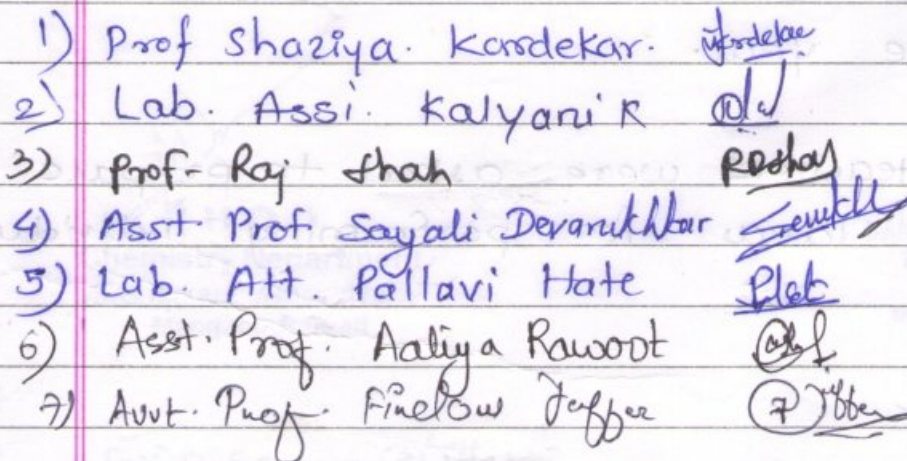 1) Prof Shaziya. Kardekar. Kardekar
2) Lab. Assi. Kalyani K
3) Prof- Raj Shah RDShah
4) Asst. Prof. Sayali Devarukhkar
5) Lab. Att. Pallavi Hate
6) Asst. Prof. Aaliya Rawoot
7) Asst. Prof. Jaffer